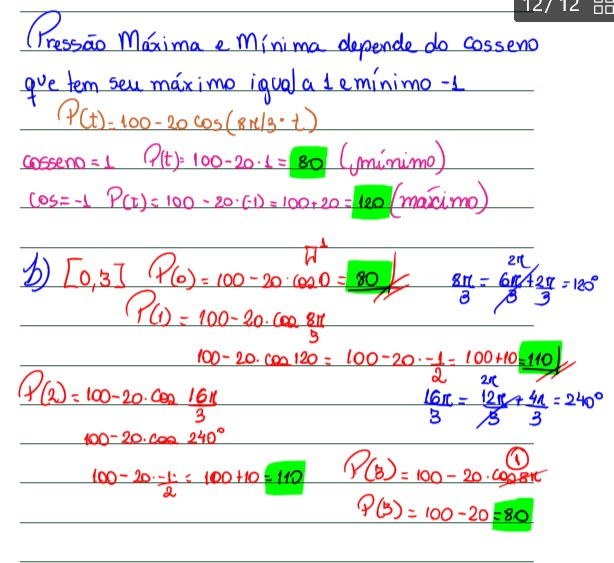 12/12
Pressão Máxima e Mínima depende do cosseno
que tem seu máximo igual a 1 e mínimo -1
P(t)=100-20 cos(8π/3·t)
cosseno=1 P(t)=100-20·1=80 (mínimo)
cos=-1 P(t)=100-20·(-1)=100+20=120 (máximo)
b) [0,3] P(0)=100-20·cos 0=80
1
8π/3 = 6π/3+2π/3=120°
2π
P(1)=100-20·cos 8π/3
100-20·cos 120=100-20·-1/2=100+10=110
P(2)=100-20·cos 16π/3
16π/3 = 12π/3+4π/3=240°
2π
100-20·cos 240°
100-20·-1/2=100+10=110
P(3)=100-20·cos 8π
1
P(3)=100-20=80